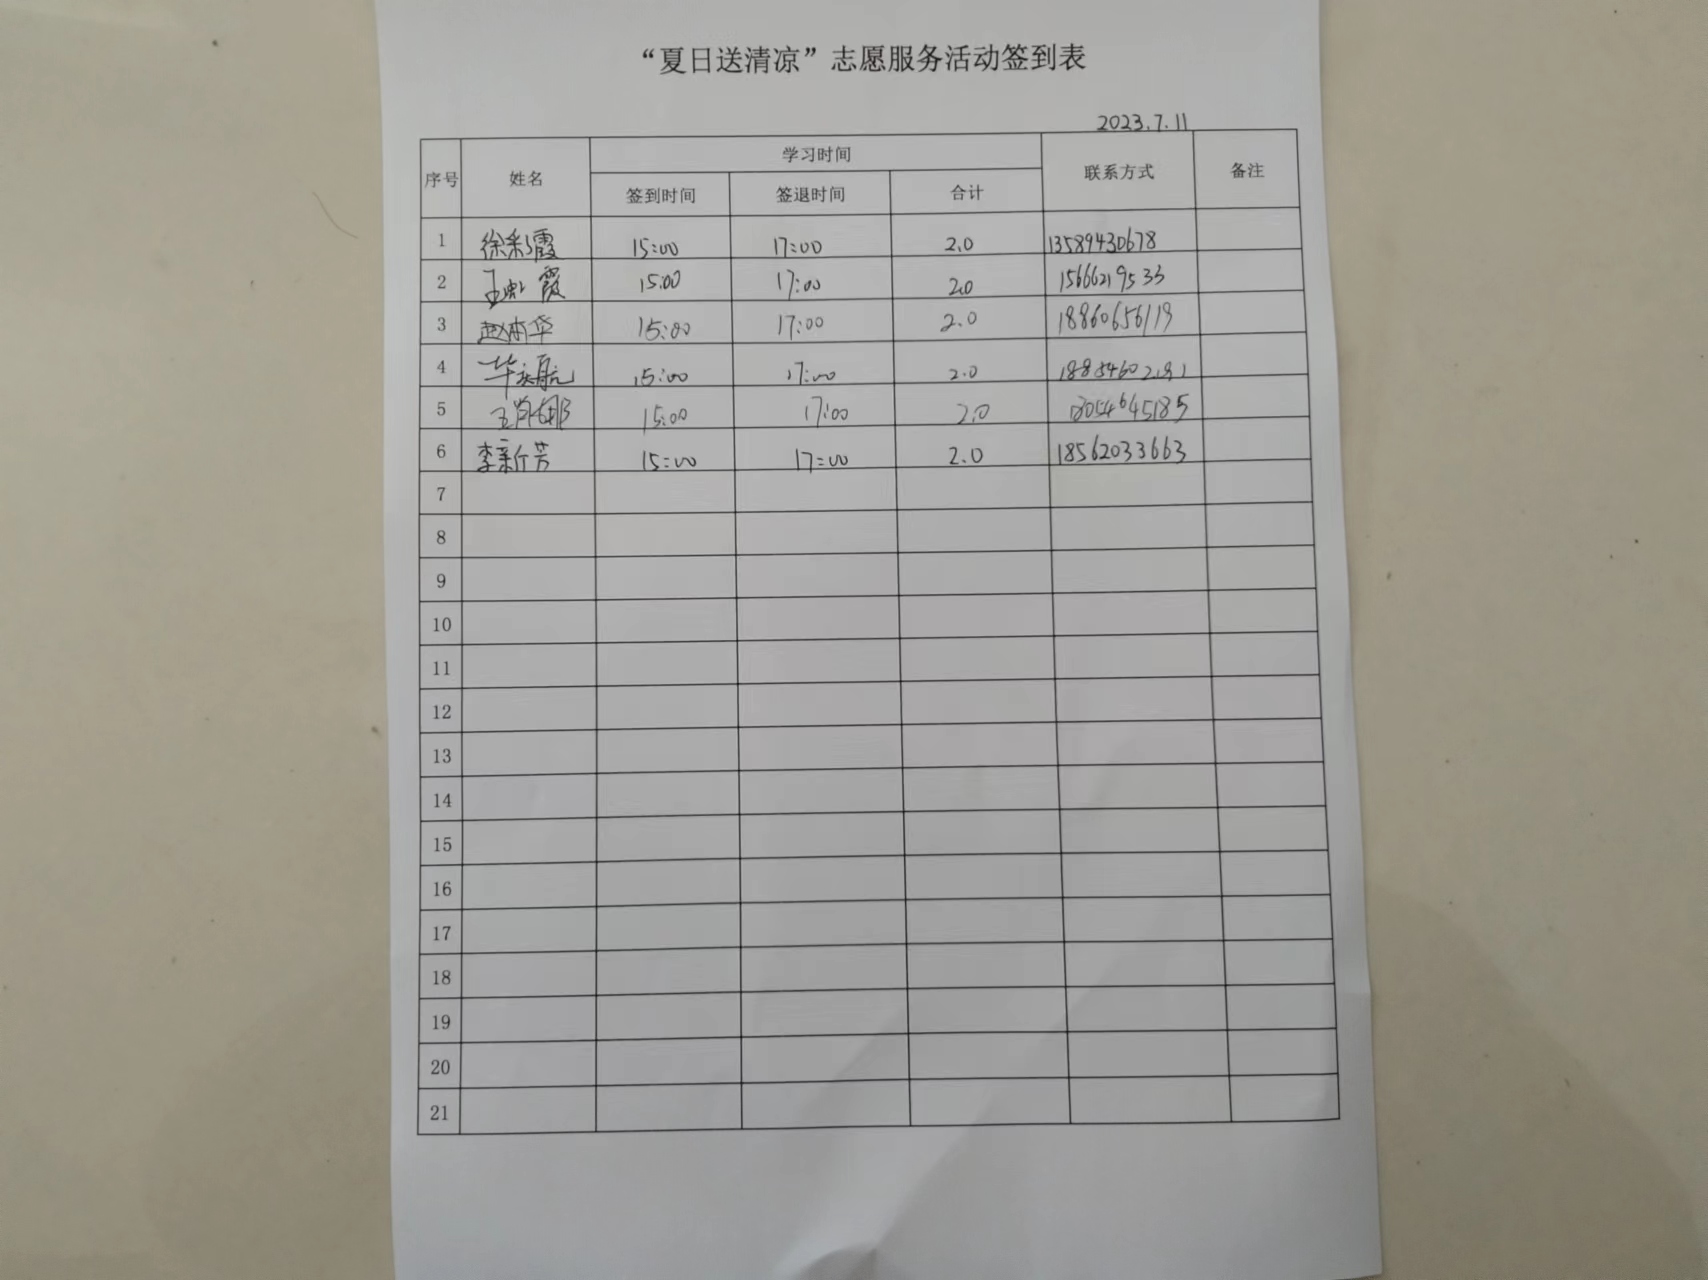 “夏日送清凉”志愿服务活动签到表
2023.7.11
序号 姓名 学习时间 联系方式 备注
签到时间 签退时间 合计
1 徐彩霞 15:00 17:00 2.0 13589430678
2 王彬霞 15:00 17:00 2.0 15666219533
3 赵本华 15:00 17:00 2.0 18860656119
4 15:00 17:00 2.0
5 王肖娜 15:00 17:00 2.0 18054645185
6 李新芳 15:00 17:00 2.0 18562033663
7
8
9
10
11
12
13
14
15
16
17
18
19
20
21